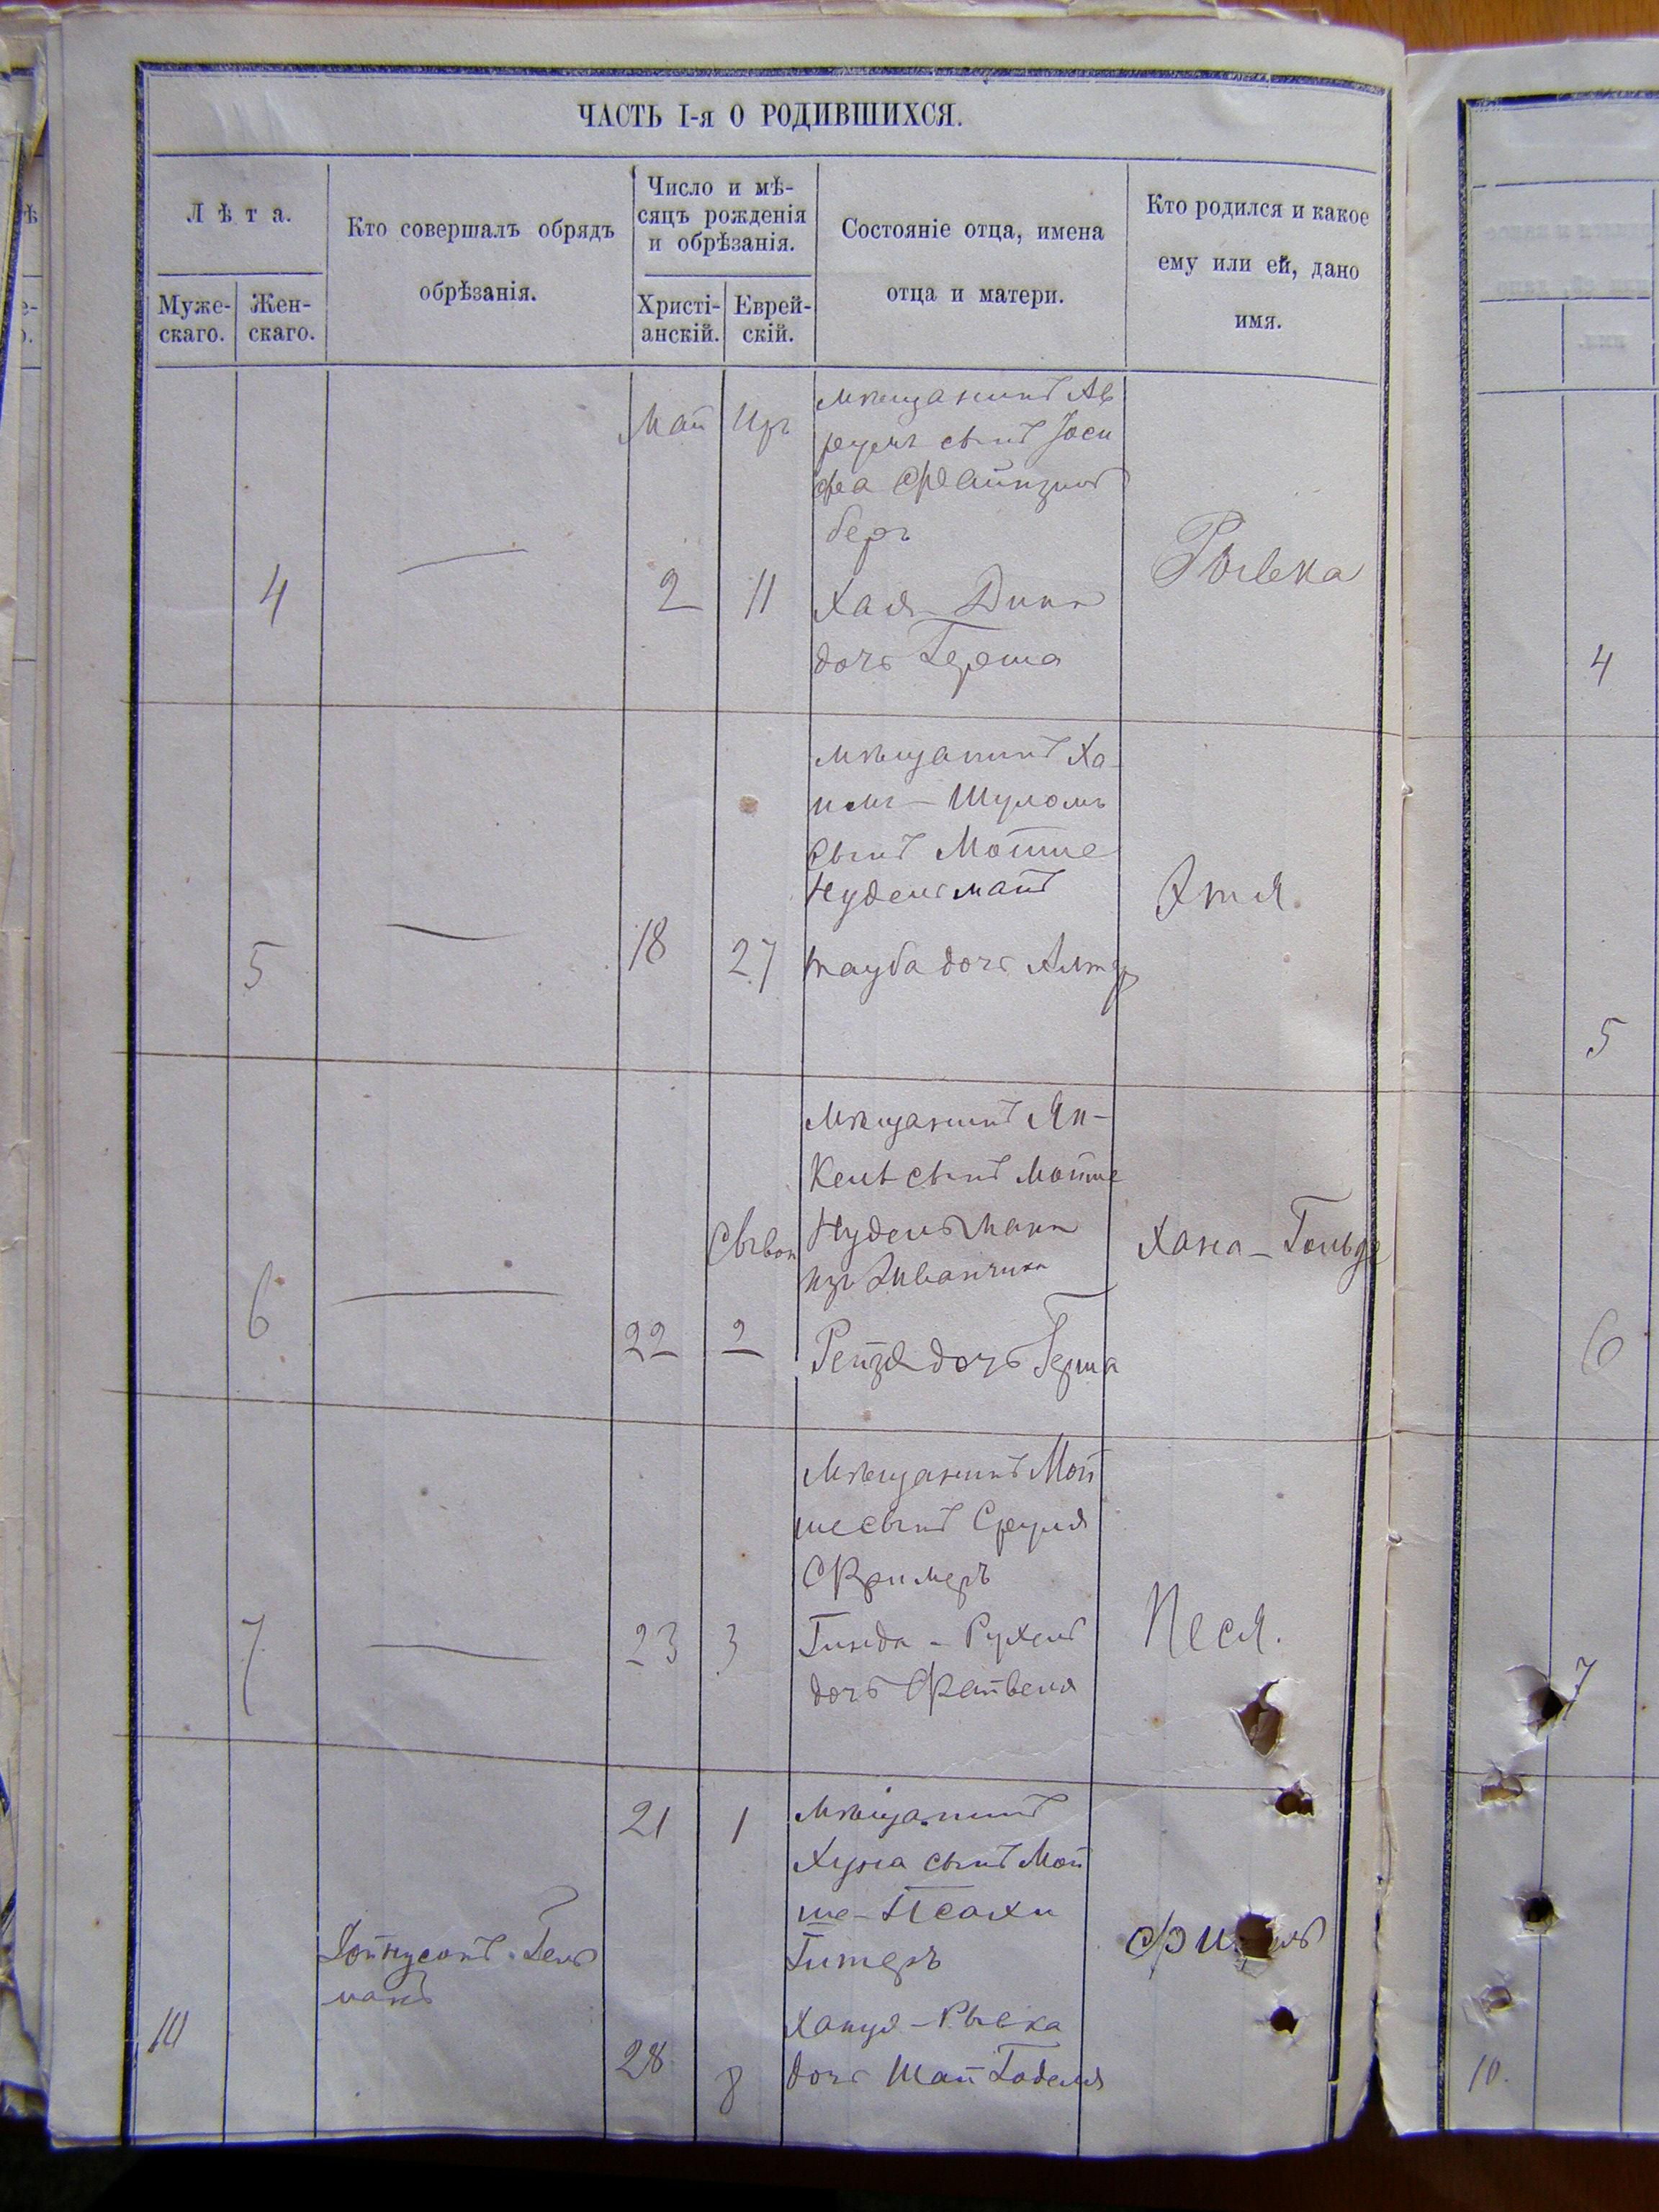 ЧАСТЬ I-я О РОДИВШИХСЯ.
Лѣта.
Муже-
скаго.
Жен-
скаго.
Кто совершалъ обрядъ
обрѣзанія.
Число и мѣ-
сяцъ рожденія
и обрѣзанія.
Христі-
анскій.
Еврей-
скій.
Состояніе отца, имена
отца и матери.
Кто родился и какое
ему или ей, дано
имя.
4
—
Май
2
Иръ
11
мѣщанинъ Ав
румъ сынъ Іоси
фа
берг
Хая-Дина
дочь Герша
Рывка
5
—
18
27
мѣщанинъ Ха-
имъ-Шуломъ
сынъ Мотше
Нудельманъ
тауба дочь Алтер
Этя.
6
—
22
Сыван
2
Мѣщанинъ Ян-
кель сынъ Мотше
Нудельман
изъ Жванчика
Рейзя дочь Герша
Хана-Гольде
7
—
23
3
Мѣщанинъ Мой
ше сынъ Сруля
Фримеръ
Гинда-Рухель
дочь Файвеля
Песя.
10
21
28
1
8
Мѣщанинъ
Хуна сынъ Мой
ше-Псахи
Гитеръ
Ханця-Рывка
дочь Шаи Годеля
4
5
6
7
10.